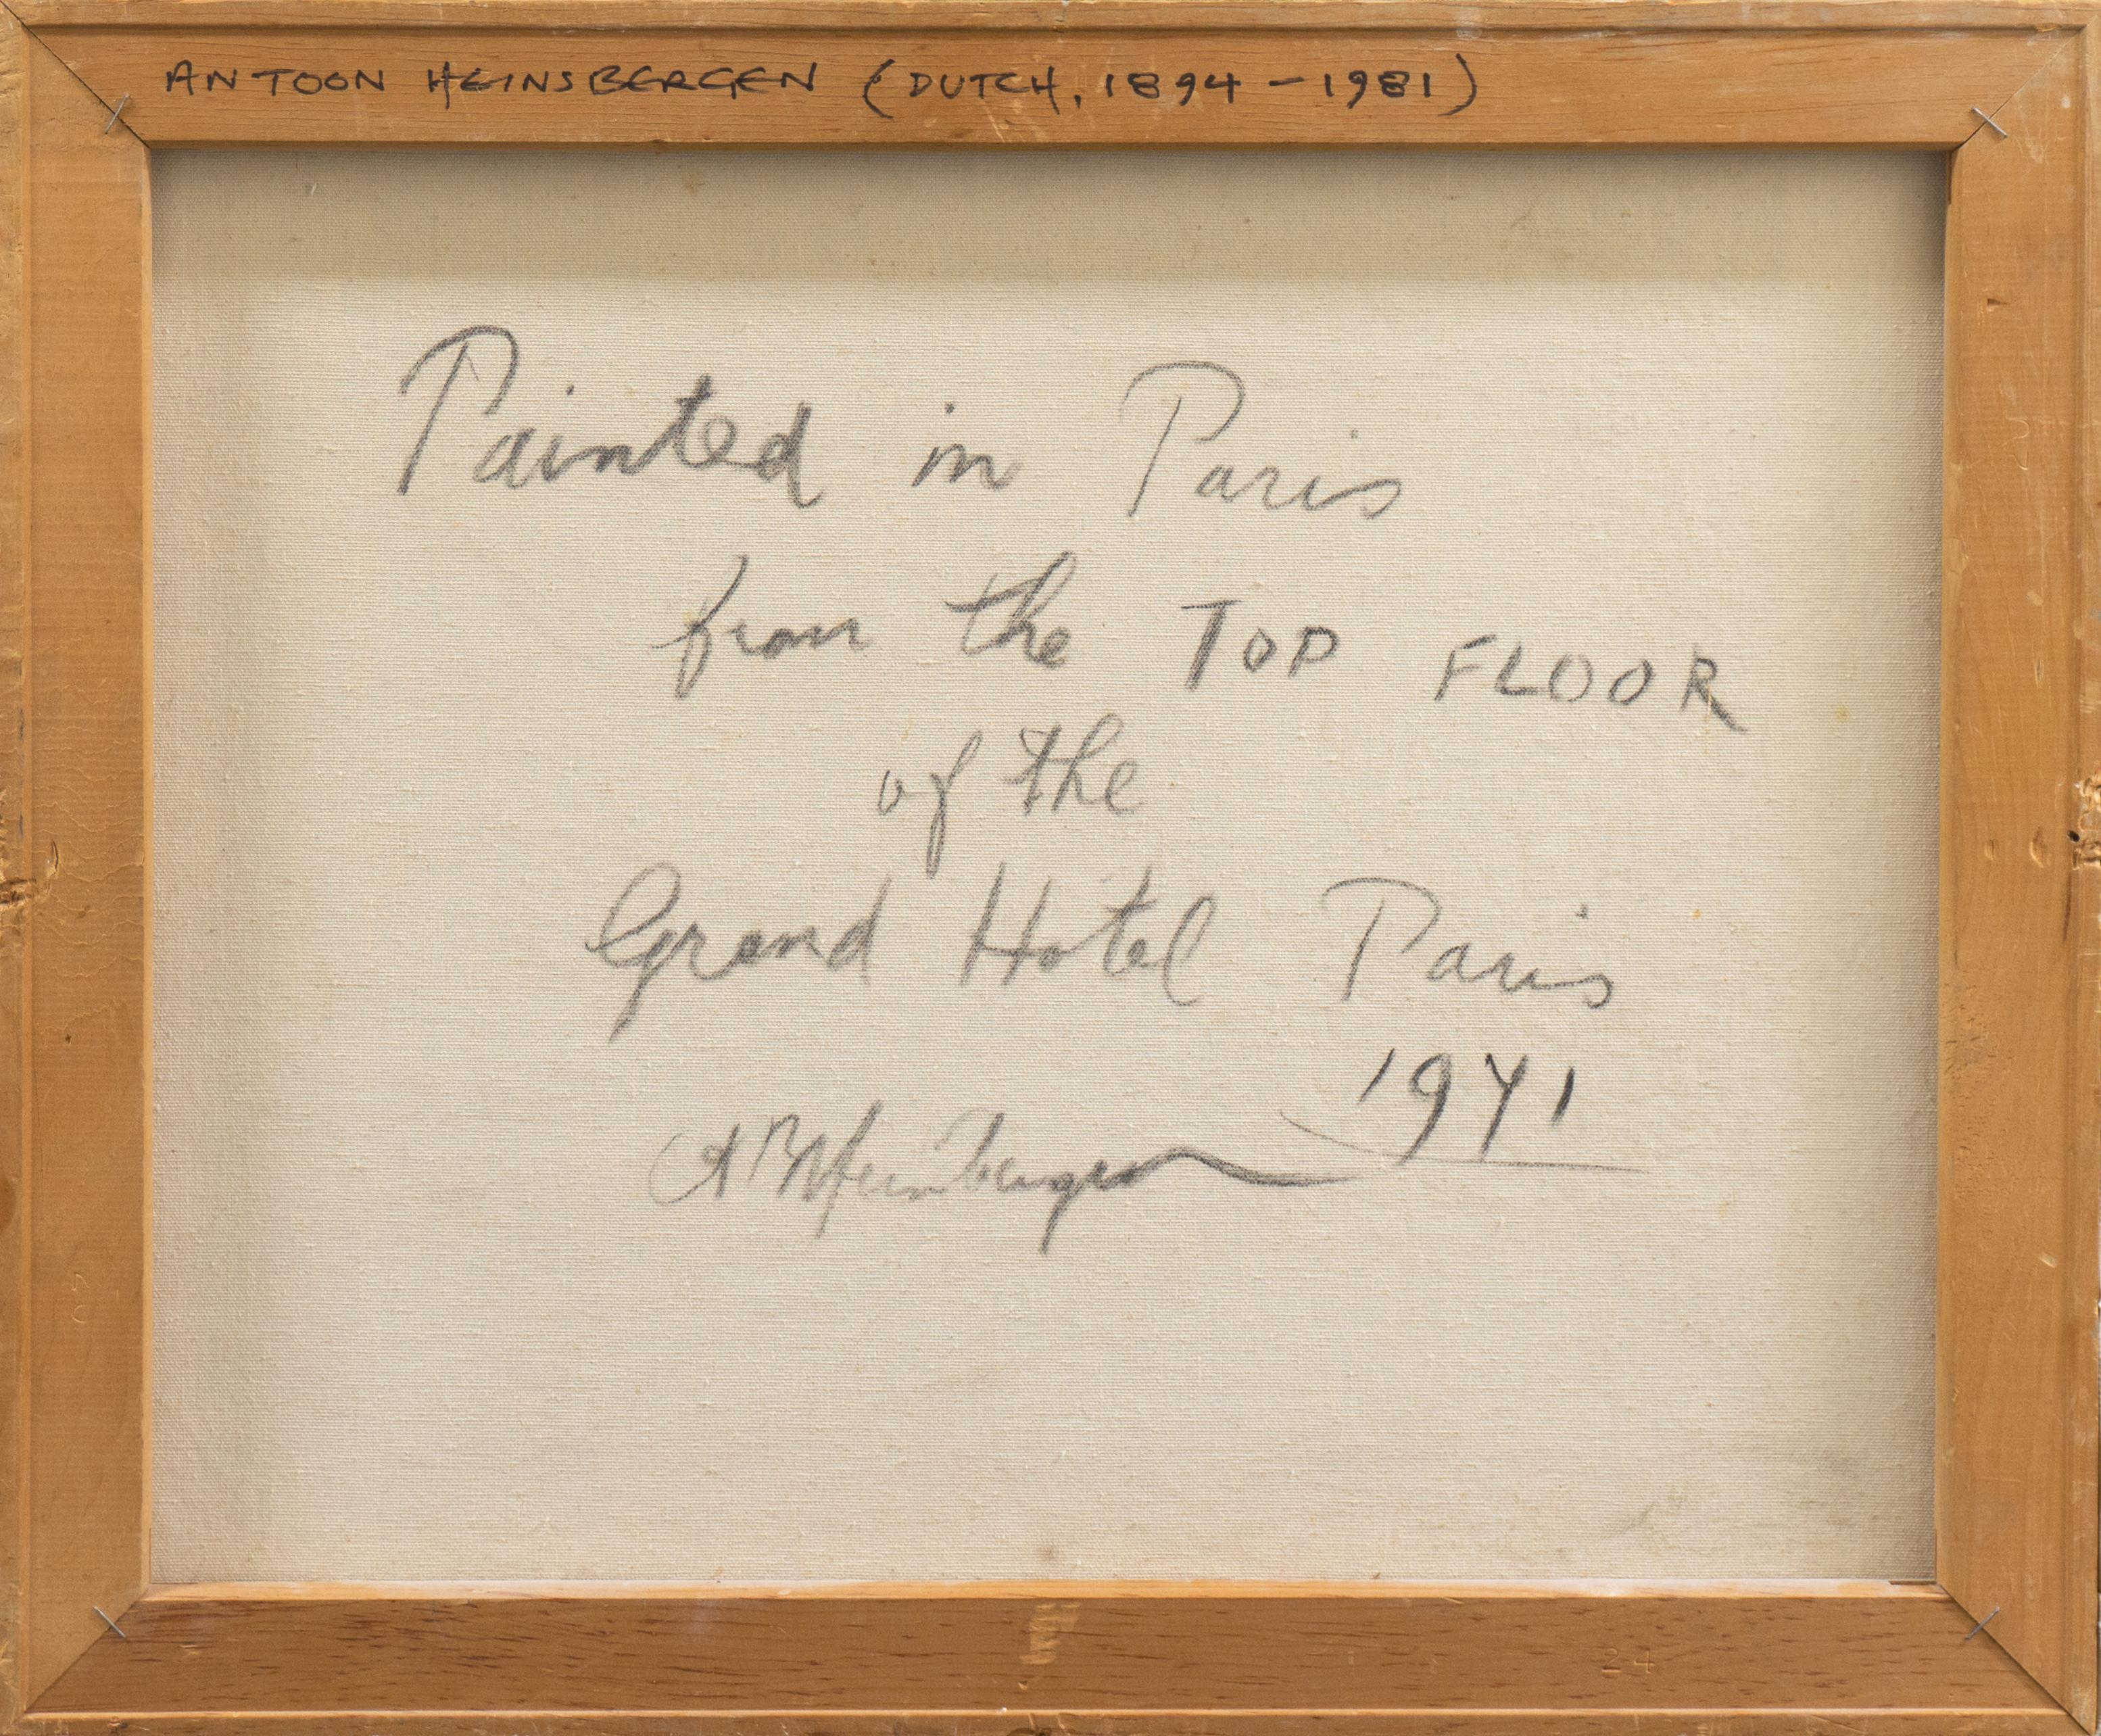 ANTOON HEINSBERGEN (DUTCH, 1894-1981)
Painted in Paris
from the TOP FLOOR
of the
Grand Hotel Paris
1971
A B Heinsbergen
24